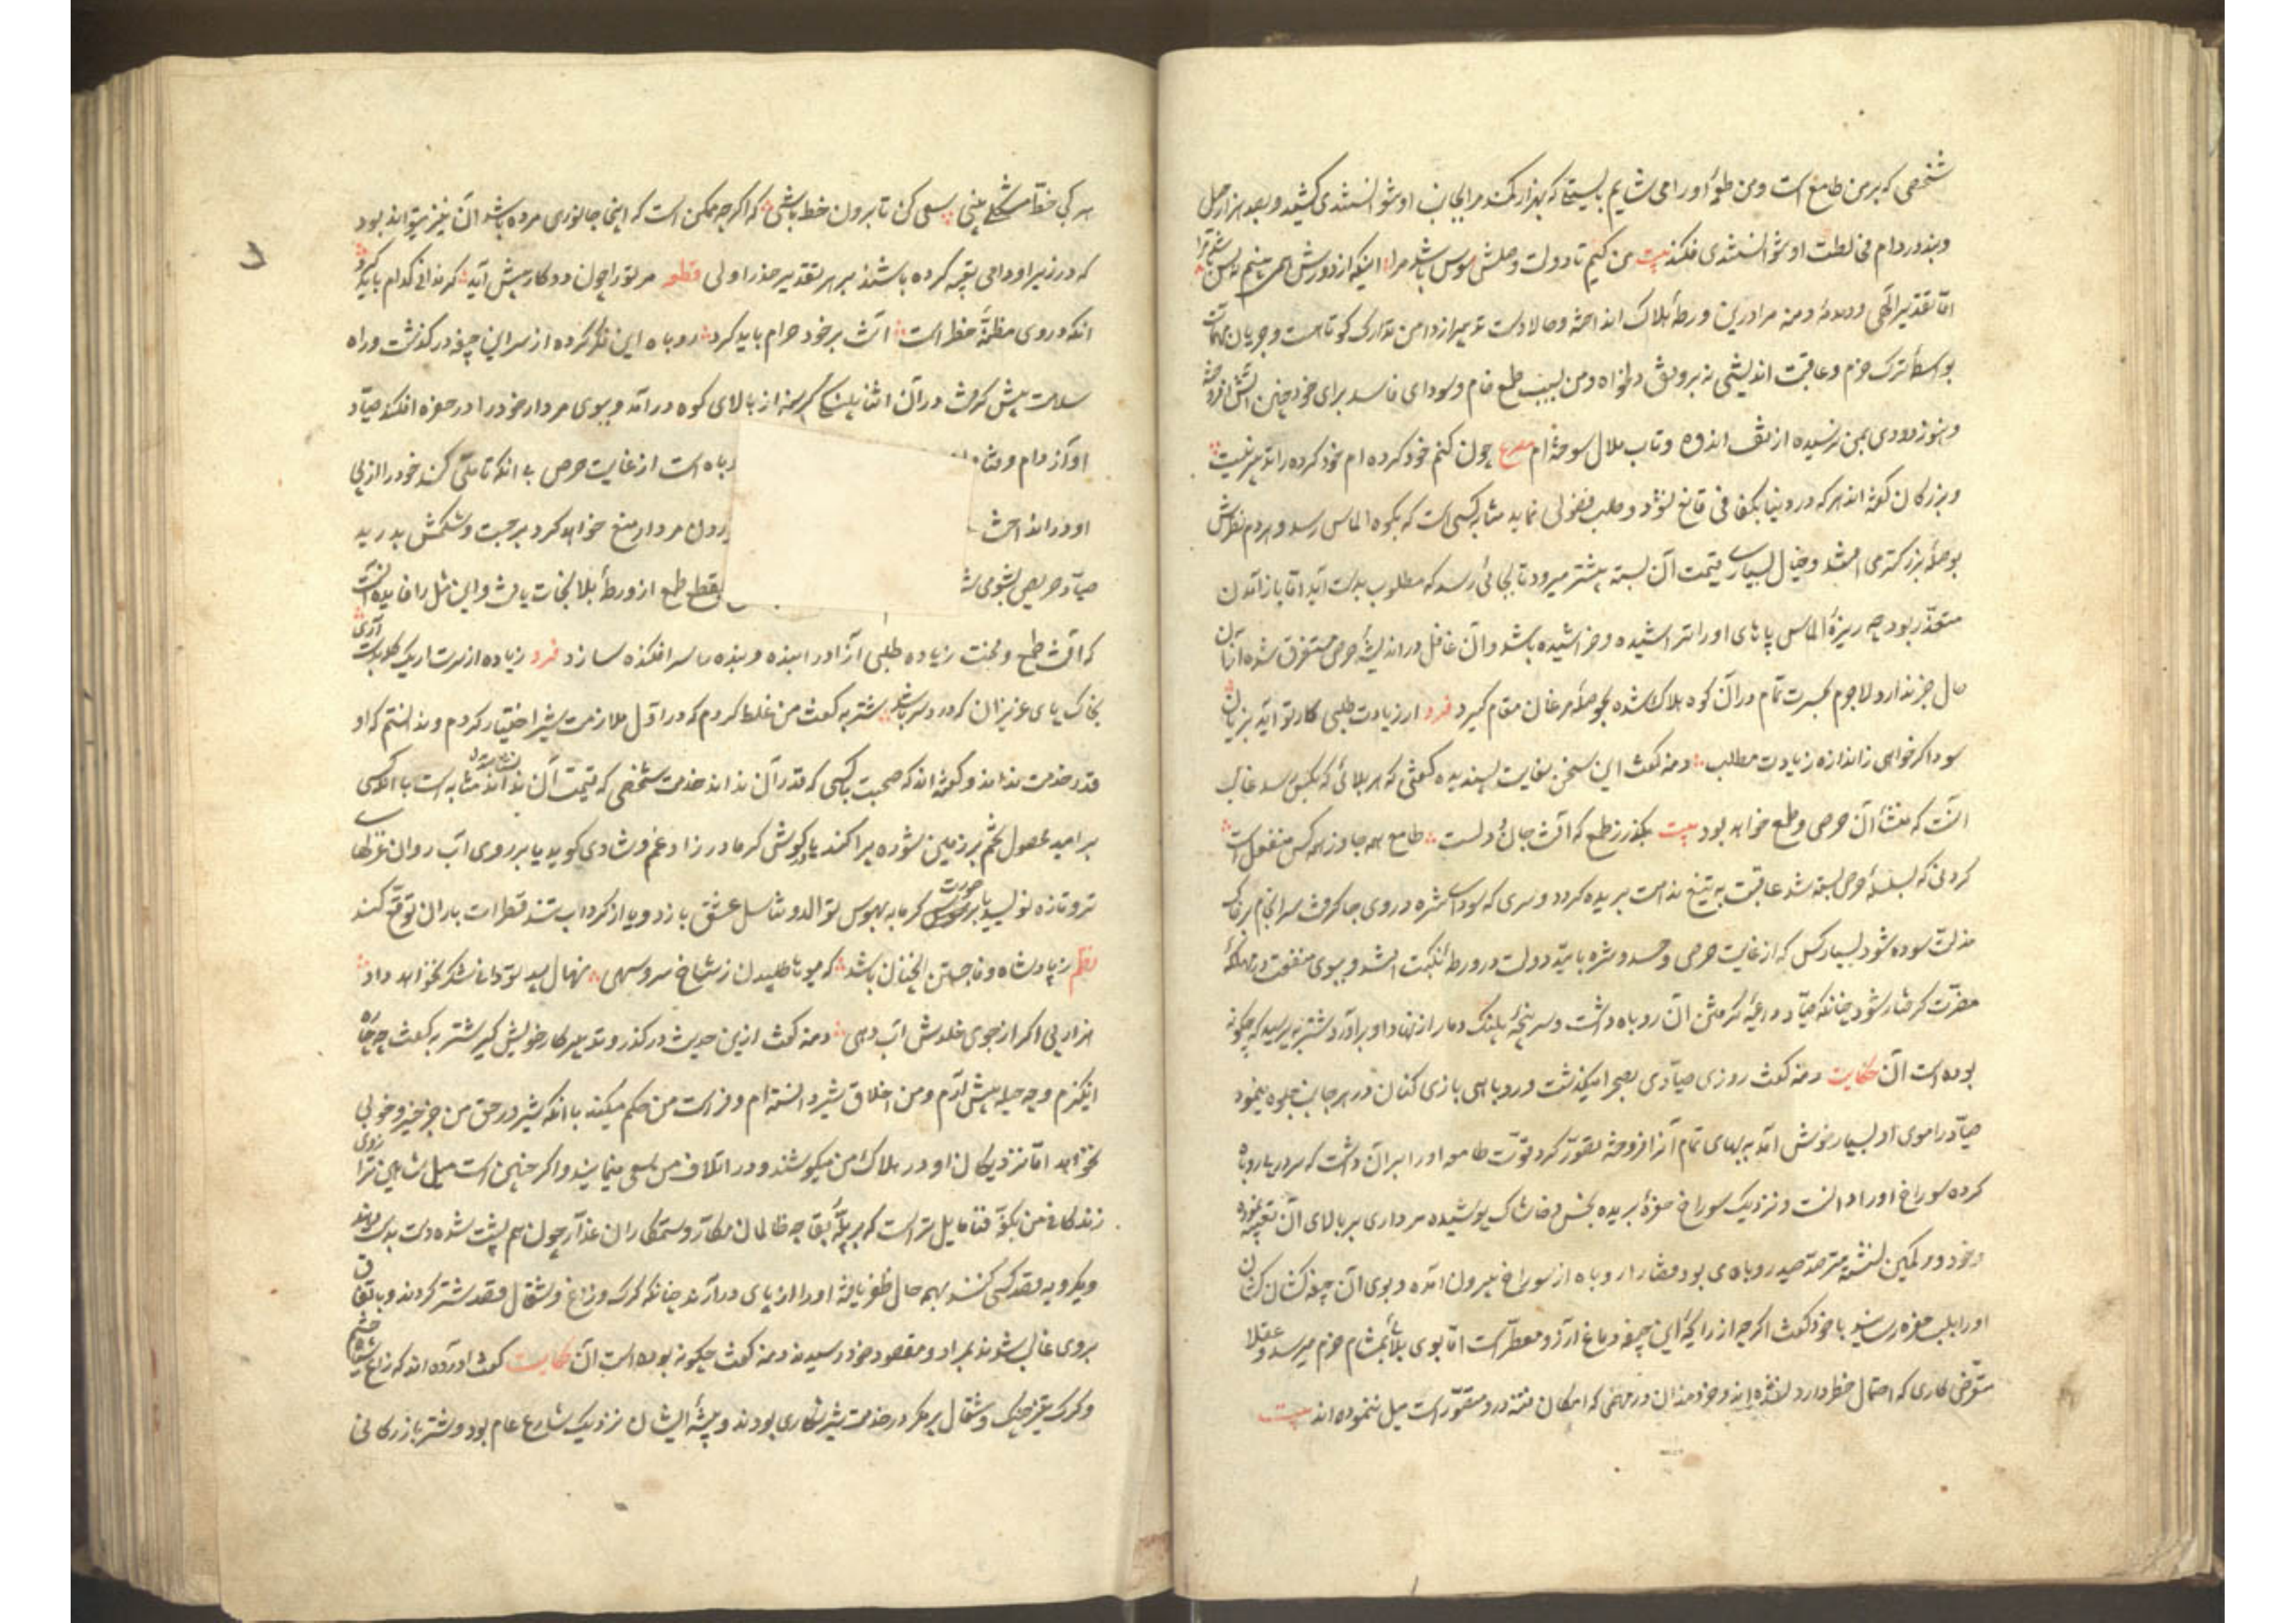 شخصی که برمن طامع است ومن طعمهٔ اورا می شایم بایستی تا که بهزار کمند مرا بجانب او نتوانستندی کشید وبصد هزار حیل
وبند در دام مخالطت او نتوانستندی فکند بیت من کیم تا دولت وصلش هوس باشد مرا اینکه از دورش همی بینم نه بس باشد مرا
اما تقدیر الهی ودمدمهٔ دمنه مرا درین ورطهٔ هلاک انداخته وحالا دست تدبیر از دامن تدارک کوتاهست وجریان مهمات
بواسطهٔ ترک حزم وعاقبت اندیشی نه بروفق دلخواه ومن بسبب طمع خام وسودای فاسد برای خود چنین آتشی افروخته
وهنوز دودی بمن نرسیده از تف اندوه وتاب ملال سوخته‌ام مصرع چون کنم خود کرده ام خود کرده را تدبیر نیست
وبزرکان کفته اند هرکه در دنیا بکفافی قانع نشود وطلب فضولی نماید مثابه کسی است که بکوه الماس رسد وهر دم نظرش
بر قطعهٔ بزرکتر می افتد وخیال بسیاری قیمت آن بسته پیشتر میرود تا بجائی رسد که مطلوب بدست آید اما باز آمدن
متعذر بود چه ریزهٔ الماس پاهای اورا تراشیده وخراشیده باشد وآن غافل در اندیشه حرص مستغرق شده از آن
حال خبر ندارد لاجرم بحسرت تمام در آن کوه هلاک شده بحوصلهٔ مرغان مقام کیرد فرد از زیادت طلبی کار تو آید بزیان
سود اکر خواهی ز اندازه زیادت مطلب دمنه کفت این سخن بغایت پسندیده کفتی که هر بلائی که بکسی رسد غالب
آنست که منشأ آن حرص وطمع خواهد بود بیت بکذر ز طمع که آفت جان و دلست طامع همه جا وز همه کس منفعل است
کردنی که بسلسلهٔ حرص بسته شد عاقبت به تیغ ندامت بریده کردد وسری که سودای شره در وی جا کرفت سر انجام بر خاک
مذلت سوده شود بسیار کس که از غایت حرص وحسد وشره بامید دولت در ورطهٔ نکبت افتد وببوی منفعت در مهلکهٔ
مضرت کرفتار شود چنانکه صیاد داعیه کرفتن آن روباه داشت وسر پنجهٔ پلنک دمار از نهاد او برآورد شتربه پرسید که چکونه
بوده است آن حکایت دمنه کفت روزی صیادی بصحرا میکذشت وروباهی بازی کنان در هر جانب جلوه مینمود
صیاد را موی او بسیار خوش آمد به بهای تمام آنرا فروخته تصور کرد قوت طامعه اورا بر آن داشت که سر در پی روباه
کرده سوراخ اورا دانست ونزدیک سوراخ حفرهٔ بریده بخس وخاشاک پوشیده مرداری بر بالای آن تعبیه نموده
وخود در کمین نشسته مترصد صید روباه می بود قضا را روباه از سوراخ بیرون آمده وبوی آن جیفه کشان کشان
اورا بلب حفره رسانید با خود کفت اکرچه از رایحهٔ این جیفه دماغ آرزو معطر است اما بوی بلائی بمشام حزم میرسد وعقلا
متعرض کاری که احتمال خطر دارد نشده اند وخردمندان در مهمی که امکان فتنه درو مقرر است میل ننموده اند بیت
هر کی خط مشکلی بینی سعی کن تا برون خط باشی که اکرچه ممکن است که اینجا جانوری مرده باشد آن نیز میتواند بود
که در زیر او دامی تعبیه کرده باشند بهر تقدیر حذر اولی قطعه مر ترا چون دو کار پیش آید که ندانی کدام باید کرد
آنکه در وی مظنهٔ خطر است آنت بر خود حرام باید کرد روباه این فکر کرده از سر این جیفه در کذشت وراه
سلامت پیش کرفت در آن اثنا پلنکی کرسنه از بالای کوه درآمد وببوی مردار خود را در حفره افکند صیاد
آواز دام و
روباه است از غایت حرص بی آنکه تأملی کند خود را از پی
او در انداخت
بیرون مردار منع خواهد کرد برجست وشکمش بدرید
صیاد حریص بشومی
بقطع طمع از ورطهٔ بلا نجات یافت واین مثل را فایده آنست
که آفت طمع ومحنت زیاده طلبی آزاد را بنده وبنده را سرافکنده سازد فرد زیاده از سرت ار یک کلهست آری
بخاک پای عزیزان که درد سر باشد شتربه کفت من غلط کردم که در اول ملازمت شیر اختیار کردم وندانستم که او
قدر خدمت نداند وکفته اند که صحبت با کسی که قدر آن نداند خدمت شخصی که قیمت آن نداند مثابه است با آنکه کسی
بر امید محصول تخم بر زمین شوره پراکند یا در کوش کر مادر زاد غم وشادی کوید یا بر روی آب روان غزلهای
تر وتازه نویسد یا بر صورت کرمابه بهوس توالد وتناسل عشق بازد ویا از کرداب تند قطرات باران توقع کند
نظم ز پادشاه وفا جستن آنچنان باشد که میوه ناطلبیدن ز شاخ سرو سهی نهال بید تو دانا شکر نخواهد داد
هزار پی اکر از جوی خلدش آب دهی دمنه کفت ازین حدیث درکذر وتدبیر کار خویش کیر شتربه کفت چه چاره
انکیزم وچه حیله پیش آرم ومن اخلاق شیر دانسته ام وفراست من حکم میکند با آنکه شیر در حق من جز خیر وخوبی
نخواهد اما نزدیکان او در هلاک من میکوشند ودر اتلاف من سعی مینمایند واکر چنین است میل شاهین ترازوی
زندکانی من بکفهٔ فنا مایل تر است که بپلهٔ بقا چه ظالمان مکار وستمکاران غدار چون هم پشت شده دست بدست دهند
ویکرویه قصد کسی کنند بهمه حال ظفر یافته اورا از پای درآرند چنانکه کرک وزاغ وشغال قصد شتر کردند وباتفاق
بروی غالب شوند بمراد ومقصود خود رسیدند دمنه کفت چکونه بوده است آن حکایت کفت آورده اند که زاغی سیاه چشم
وکرک تیز چنک وشغال پر مکر در خدمت شیر شکاری بودند وبیشهٔ ایشان نزدیک شارع عام بود وشتر بازرکانی